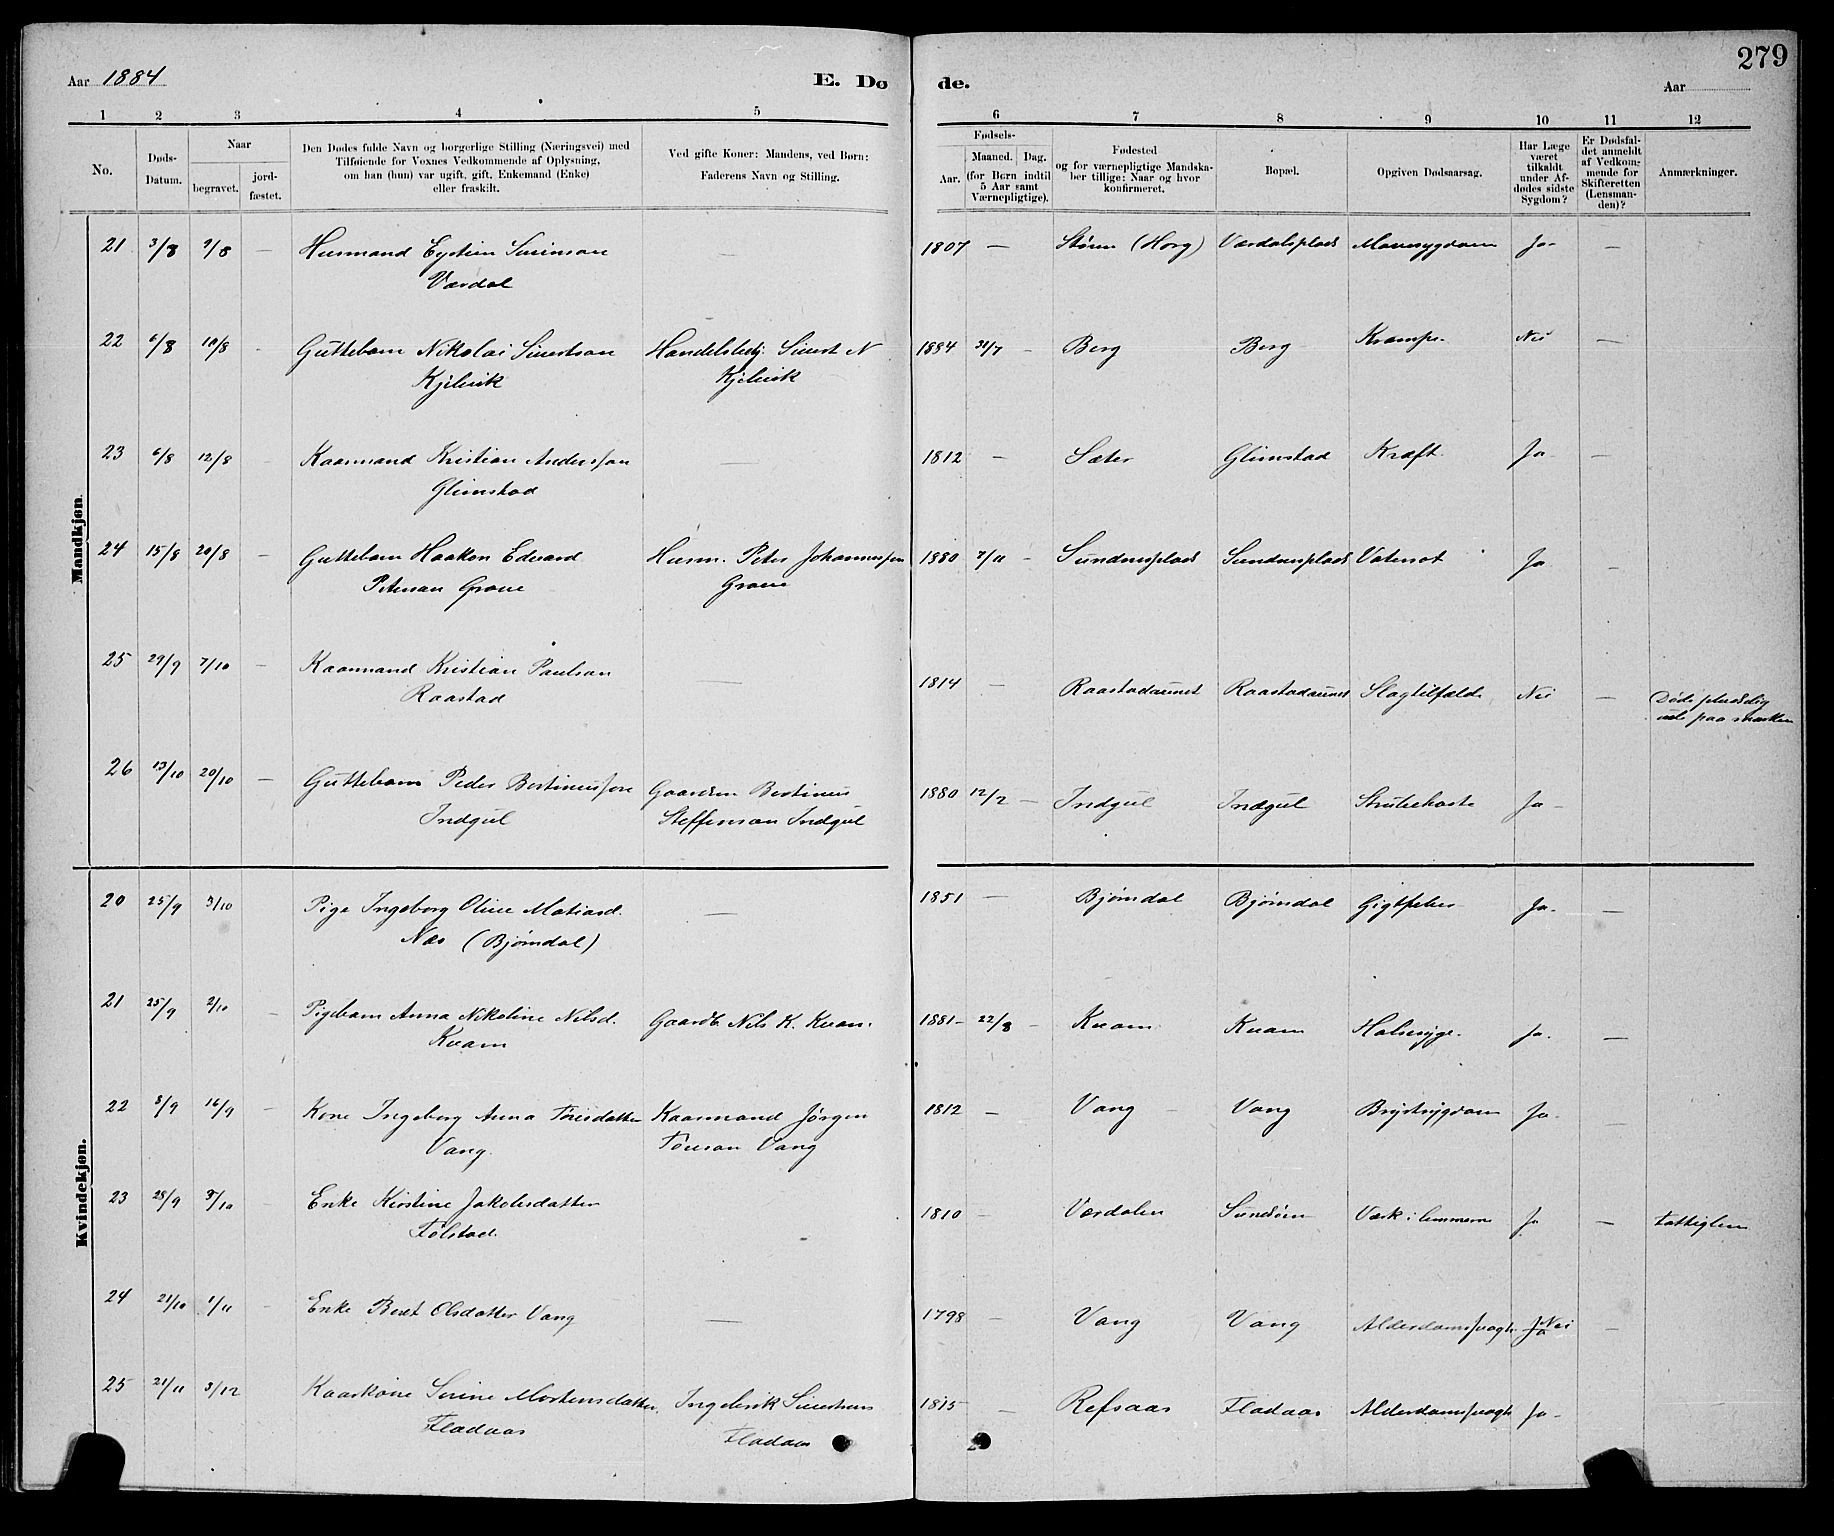 279
Aar 1884 E. Døde. Aar
1 2 3 4 5 6 7 8 9 10 11 12
No. Døds-Datum. Naar begravet. jordfæstet.
Den Dødes fulde Navn og borgerlige Stilling (Næringsvei) med
Tilføiende for Voxnes Vedkommende af Oplysning,
om han (hun) var ugift, gift, Enkemand (Enke)
eller fraskilt.
Ved gifte Koner: Mandens, ved Børn:
Faderens Navn og Stilling.
Fødsels-
Aar. Maaned. Dag.
(for Børn indtil
5 Aar samt
Værnepligtige).
Fødested
og for værnepligtige Mandska-
ber tillige: Naar og hvor
konfirmeret.
Bopæl.
Opgiven Dødsaarsag.
Har Læge
været
tilkaldt
under Af-
dødes sidste
Sygdom?
Er Dødsfal-
det anmeldt
af Vedkom-
mende for
Skifteretten
(Lensman-
den)?
Anmærkninger.
Mandkjøn.
21 3/8 9/8 — Husmand Eystein Sivertson — 1807 — Støren (Horg) Værdalsplads Mavesygdom Ja —
Værdal
22 6/8 10/8 - Guttebarn Nikolai Sivertson Handelsbetj. Sivert N 1884 21/7 — Berg Berg Krampe. Nei —
Kjelvik Kjelvik
23 6/8 12/8 — Kaarmand Kristian Anderssøn — 1812 — Sæter Glimstad Kræft. Ja —
Glimstad
24 15/8 20/8 — Guttebarn Haakon Edvard Husm. Peter Johannessen 1880 7/11 — Sundnesplads Sundnesplads Vatersot Ja —
Peterson Grove Grove
25 29/9 7/10 — Kaarmand Kristian Paulson — 1814 — Raastadaunet Raastadaunet Slagtilfælde Nei — Døde pludselig
Raastad ude paa marken
26 13/10 20/10 — Guttebarn Peder Bertinussøn Gaardm Bertinus 1880 12/2 — Indgul Indgul Strubehoste Ja -
Indgul Steffenson Indgul
Kvindekjøn.
20 25/9 3/10 Pige Ingeborg Oline Matiasd. — 1851 — Bjørndal Bjørndal Gigtfeber Ja. —
Næs (Bjørndal)
21 25/9 2/10 — Pigebarn Anna Nikoline Nilsd. Gaardb. Nils K. Kvam. 1881 22/3 — Kvam Kvam Halssyge. Ja. —
Kvam
22 8/9 16/9 — Kone Ingeborg Anna Tørrisdatter Kaarmand Jørgen 1812 — Vang Vang Brystsygdom Ja. —
Vang. Tønson Vang
23 28/9 3/10 — Enke Kirstine Jakobsdatter 1810 — Værdalen Sundsøen Værk i lemmerne Ja — Fattiglem
Følstad.
24 21/10 1/11 — Enke Beret Olsdatter Vang — 1798 — Vang Vang Alderdomssvagh. Ja Nei —
25 21/11 3/12 Kaarkone Serine Mortensdatter. Ingebrik Sivertsens 1815 — Refsaas Fladaas Alderdomssvagh Ja -
Fladaas Fladaas